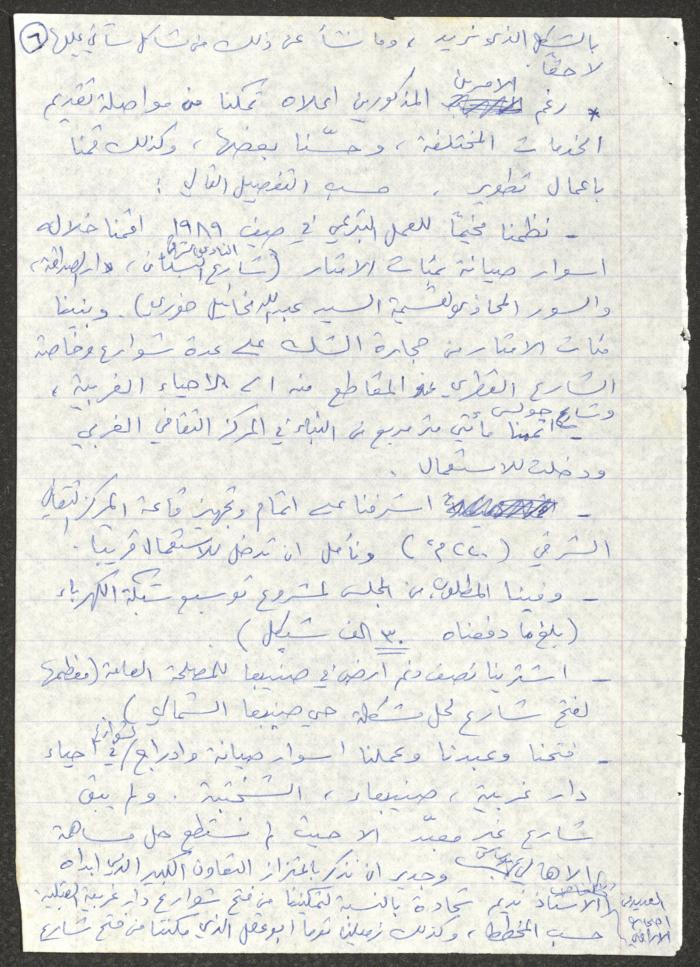 ٦
بالشكل الذي نريد ، وما نشأ عن ذلك من مشاكل سنأتي عليها
لاحقاً
* رغم الامرين المذكورين اعلاه تمكنا من مواصلة تقديم
الخدمات المختلفة ، وحسّنا بعضها ، وكذلك قمنا
باعمال تطوير . حسب التفصيل التالي :
- نظمنا مخيّماً للعمل التبرعي في صيف ١٩٨٩ اقمنا خلاله
اسوار صيانة بمئات الامتار (شارع البستان ، دار الصداقة ،
والسور المحاذي لقسيمة السيد عبدالله مخائيل خوري) . وبنينا
مئات الامتار من حجارة الشك على عدة شوارع وخاصة
الشارع القطري المقاطع منه الى الاحياء الغربية ،
وشارع جولس
- اتممنا مأتي متر مربع من البناء في المركز الثقافي الغربي
ودخلت للاستعمال .
- اشرفنا على اتمام وتجهيز قاعة المركز الثقافي
الشرقي (٢٢٠ م٢) ونأمل ان تدخل للاستعمال قريباً .
- وفينا المطلوب من المجلس لمشروع توسيع شبكة الكهرباء
(بلغ ما دفعناه ٣٠ الف شيكل)
- اشترينا نصف دنم ارض في صنيبعا للمصلحة العامة (معظمها
لفتح شارع لحل مشكلة حي صنيبعا الشمالي)
- فتحنا وعبدنا وعملنا اسوار صيانة وادراج في شوارع احياء
دار غربية ، صنيبعاء ، الشختبة . ولم يبق
شارع غير معبّد الا حيث لم نستطع حل مساهمة
الاهالي وجدير ان نذكر بالاعتزاز التعاون الكبير الذي ابداه
الاستاذ نديم شحادة بالنسبة لتمكيننا من فتح شوارع دار غربية القبلية
حسب المخطط ، وكذلك زميلنا توما ابو عقل الذي مكننا من فتح شارع
العديد من
اصحاب
الاراضي